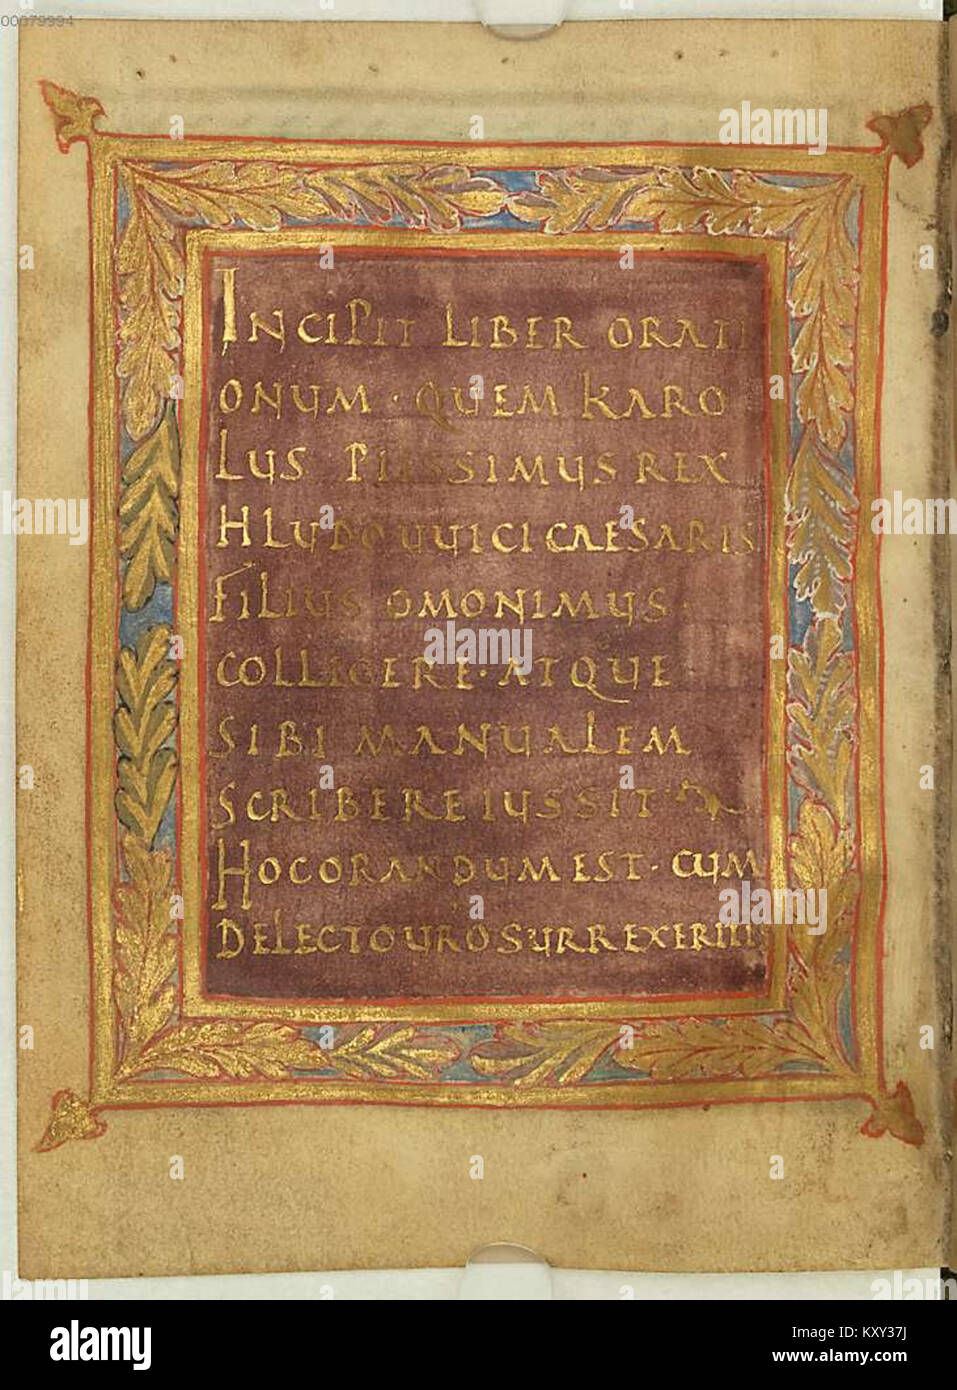 00079994
INCIPIT LIBER ORATI
ONUM · QUEM KARO
LUS PIISSIMUS REX
HLUDOUUICI CAESARIS
FILIUS OMONIMUS ·
COLLIGERE · ATQUE
SIBI MANUALEM
SCRIBERE IUSSIT
HOC ORANDUM EST · CUM
DE LECTO URO SURREXERITIS
alamy
alamy
alamy
alamy
alamy
alamy
Image ID: KXY37J
www.alamy.com